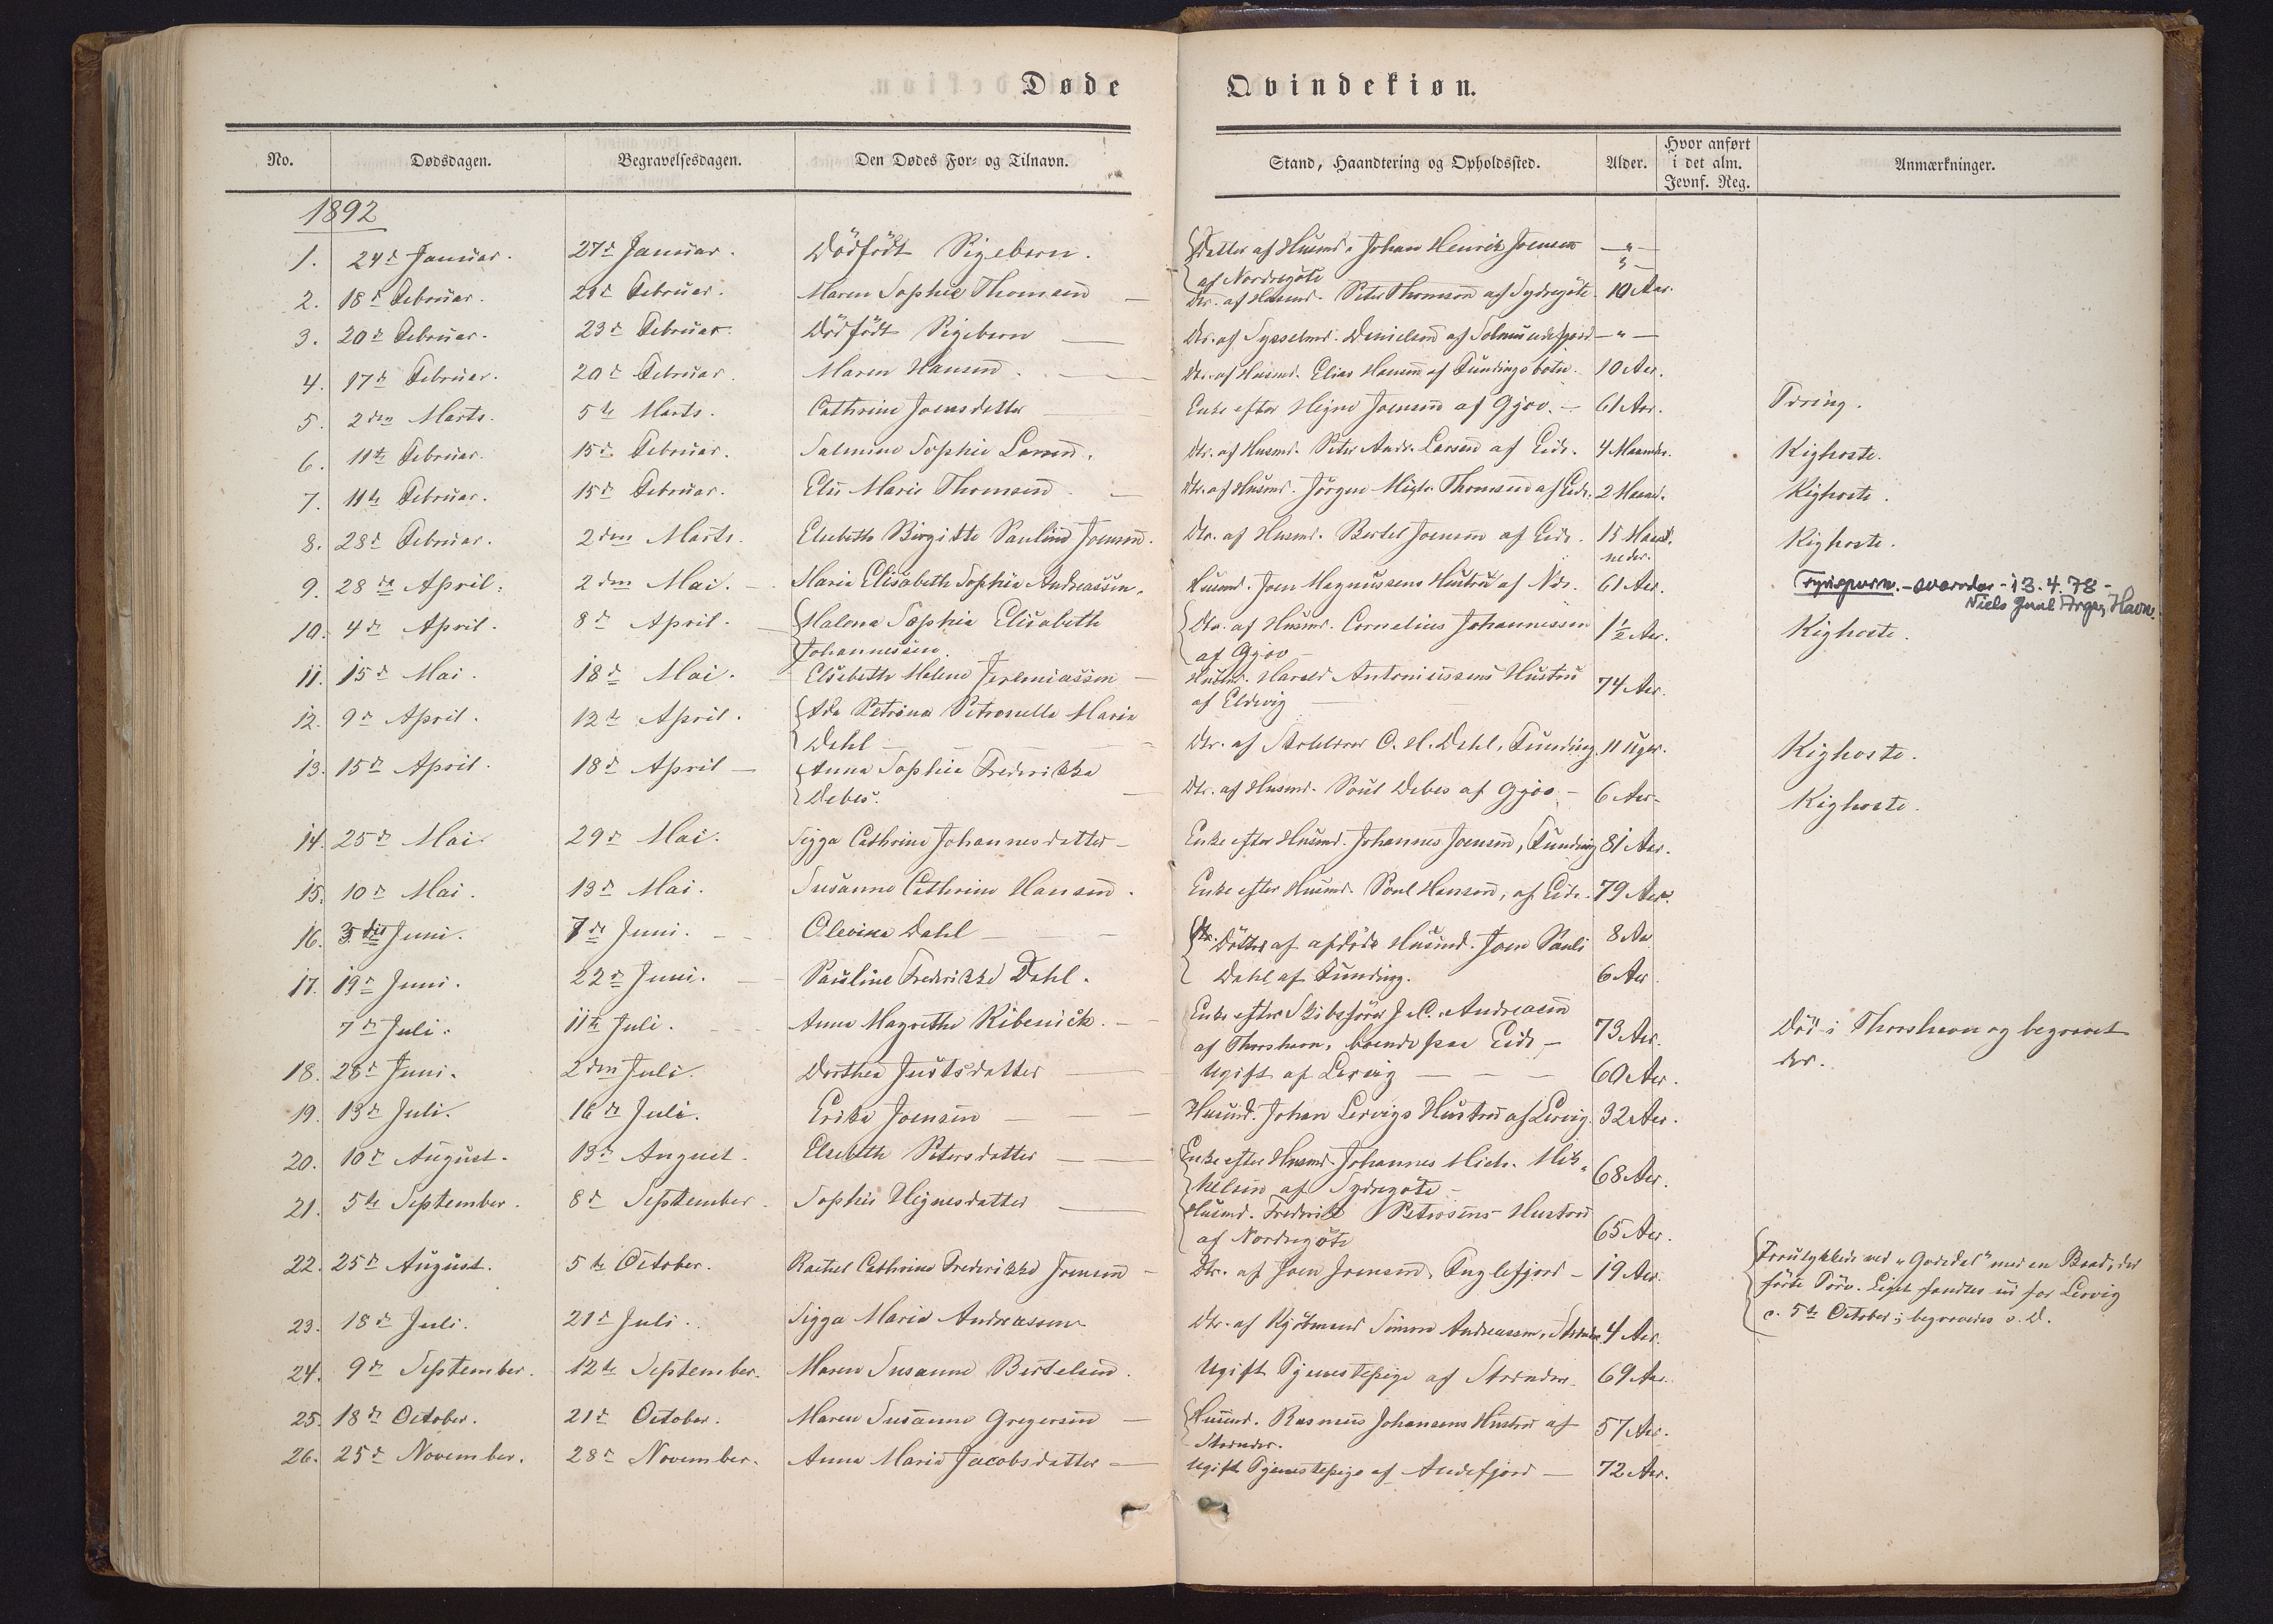 Døde Qvindekiøn.
No. Dødsdagen. Begravelsesdagen. Den Dødes For- og Tilnavn. Stand, Haandtering og Opholdssted. Alder. Hvor anført i det alm. Jevnf. Reg. Anmærkninger.
1892
1. 24d Januar. 27d Januar. Dödfödt Pigebarn. Datter af Husmd. Johan Henrik Joensen af Nordregöte —"—
2. 18d Februar. 21d Februar. Maren Sophie Thomsen — Dtr. af Husmd. Peter Thomsen af Sydregöte 10 Aar.
3. 20d Februar. 23d Februar. Dödfödt Pigebarn — Dtr. af Sysselmd. Danielsen af Solmundefjord —"—
4. 17d Februar. 20d Februar. Maren Hansen. — Dtr. af Husmd. Elias Hansen af Fundingsbotn. 10 Aar.
5. 2den Marts. 5te Marts. Cathrine Joensdatter Enke efter Heyne Joensen af Gjov. — 61 Aar. Tæring.
6. 11te Februar. 15d Februar. Salmine Sophie Larsen. Dtr. af Husmd. Peter Andr. Larsen af Eide. 4 Maaneder. Kighoste.
7. 11te Februar. 15d Februar. Elsi Marie Thomsen. — Dtr. af Husmd. Jörgen Thomsen af Eide. 2 Maaned. Kighoste.
8. 28d Februar. 2den Marts. Elsebeth Birgitte Pauline Joensen. Dtr. af Husmd. Bertel Joensen af Eide. 15 Maaneder. Kighoste.
9. 28de April. 2den Mai. — Maria Elisabeth Sophie Andreassen. Husmd. Joen Magnussens Hustru af Ndr. 61 Aar. 13.4.78 - Niels Juul Arge, Havn.
10. 4d April. 8d April. Malena Sophie Elisabeth Johannessen. Dtr. af Husmd. Cornelius Johannessen af Gjov — 1½ Aar. Kighoste.
11. 15d Mai. 18d Mai. Elsebeth Malene Jeremiassen — Husmd. Harald Antoniussens Hustru af Eldevig — 74 Aar.
12. 9d April. 12te April. Ada Petrina Petronella Maria Dahl — Dtr. af Skolelærer O. H. Dahl, Funding 11 Uger. Kighoste.
13. 15d April. 18d April — Anna Sophie Frederikka Debes. Dtr. af Husmd. Poul Debes af Gjov — 6 Aar. Kighoste.
14. 25d Mai. 29d Mai. Sigga Cathrine Johannesdatter — Enke efter Husmd. Johannes Joensen, Funding 81 Aar.
15. 10d Mai. 13d Mai. Susanne Cathrine Hansen. Enke efter Husmd. Poul Hansen, af Eide. 79 Aar.
16. 3die Juni. 7de Juni. — Olevine Dahl — Döttre af afdöde Husmd. Joen Pauli 8 Aar
17. 19d Juni. 22d Juni. — Pauline Frederikke Dahl. Dahl af Funding. 6 Aar
7d Juli. 11te Juli. Anna Magrethe Ribenick. — Enke efter Skibsförer J. C. Andreasen af Thorshavn, boende paa Eide — 73 Aar. Död i Thorshavn og begravet der.
18. 28d Juni. 2den Juli. Dorthea Justsdatter — Ugift af Lervig — 60 Aar.
19. 13d Juli. 16d Juli. Erika Joensen — Husmd. Johan Lervigs Hustru af Lervig. 32 Aar.
20. 10d August. 13d August. Elsebeth Petersdatter — Enke efter Husmd. Johannes Mich. Mikkelsen af Sydregöte — 68 Aar.
21. 5te September. 8d September. Sophie Heynesdatter — Husmd. Frederik Petersens Hustru af Nordregöte 65 Aar.
22. 25d August. 5te October. Rachel Cathrine Frederikke Joensen — Dtr. af Joen Joensen, Fuglefjord — 19 Aar. Forulykkede ved "Godedal" med en Baad, der förte Törv. Liget fandtes ud for Lervig d. 5te October; begravedes s. D.
23. 18d Juli. 21d Juli. Sigga Maria Andreassen Dtr. af Simon Andreassen, Strender 4 Aar.
24. 9d September. 12te September. Maren Susanne Bertelsen. Ugift Tjenestepige af Strender 69 Aar.
25. 18d October. 21d October. Maren Susanne Gregersen — Husmd. Rasmus Johansens Hustru af Strender. 57 Aar.
26. 25d November. 28d November. Anna Maria Jacobsdatter — Ugift Tjenestepige af Andefjord — 72 Aar.